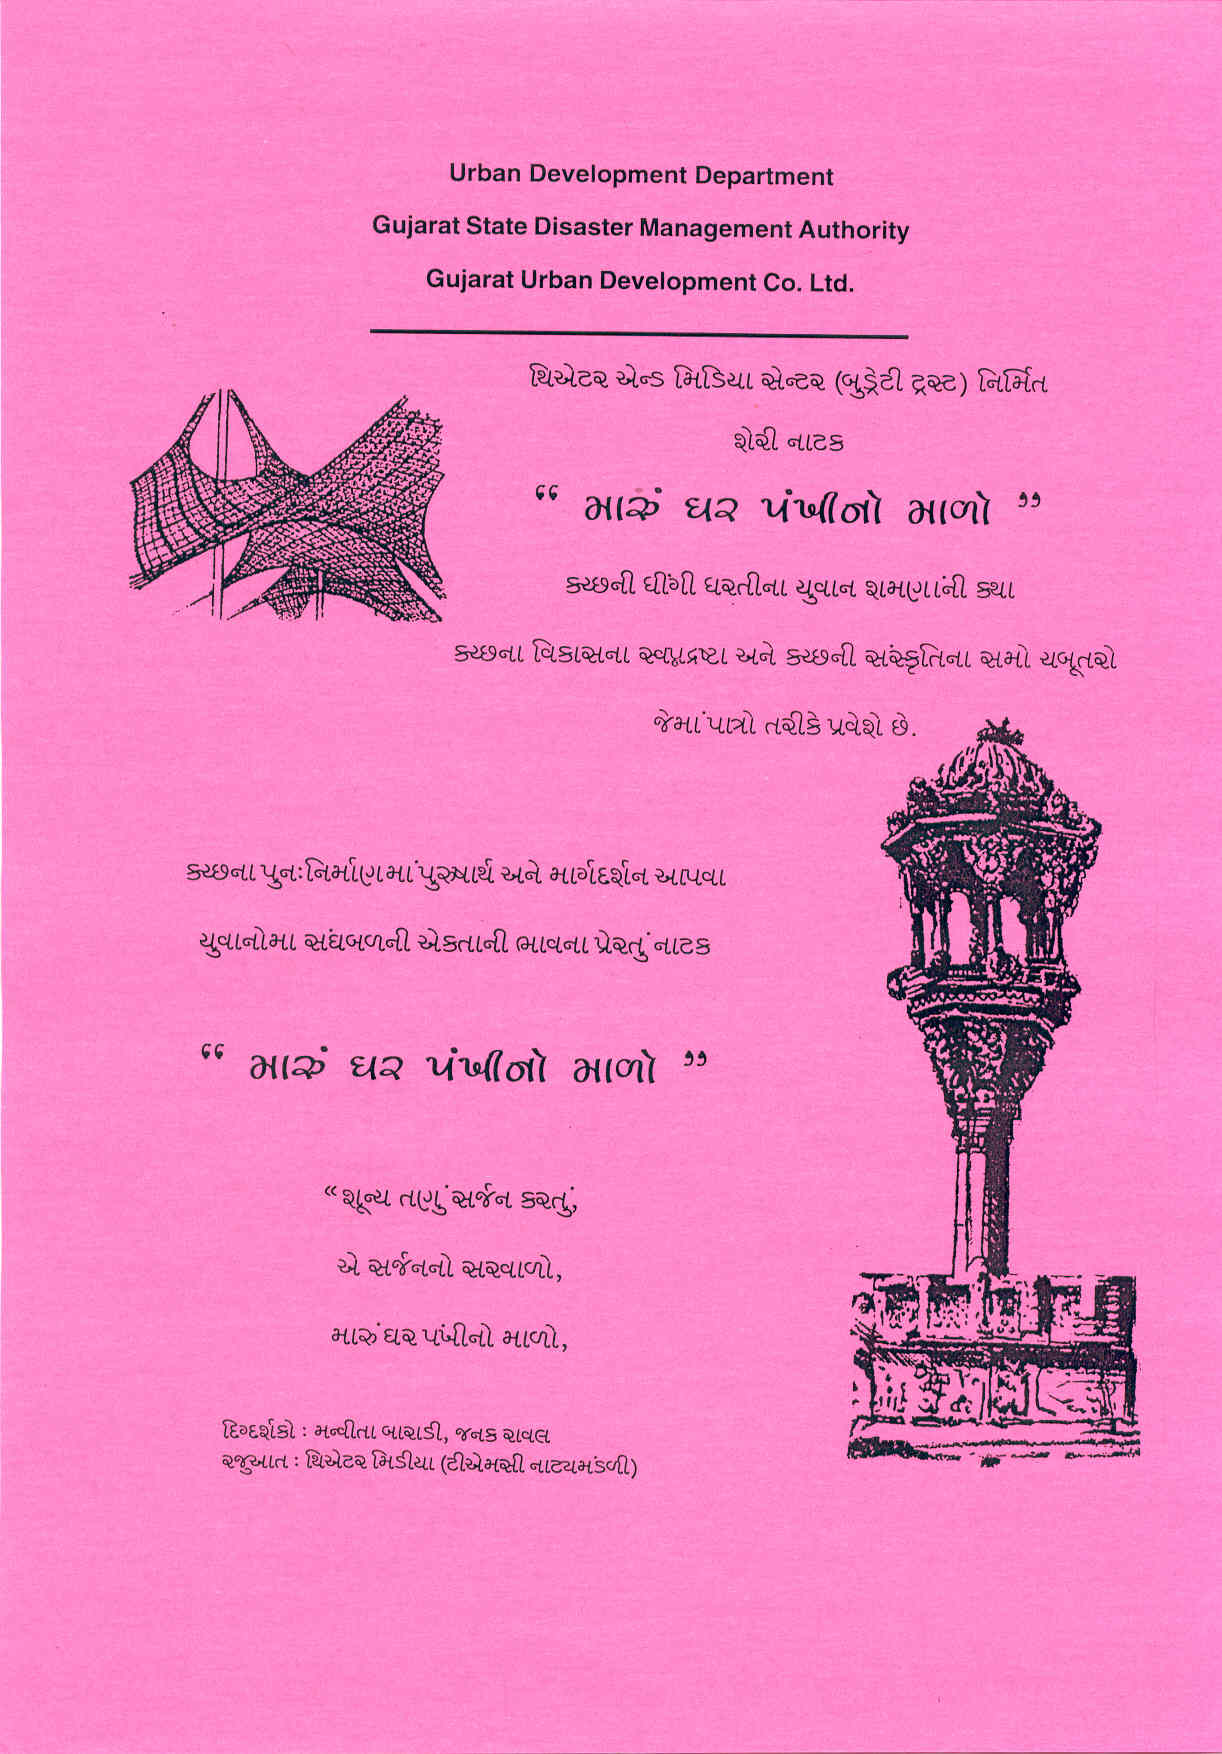 Urban Development Department
Gujarat State Disaster Management Authority
Gujarat Urban Development Co. Ltd.
થિએટર એન્ડ મિડિયા સેન્ટર (બુડ્રેટી ટ્રસ્ટ) નિર્મિત
શેરી નાટક
“ મારું ઘર પંખીનો માળો ”
કચ્છની ધીંગી ધરતીના યુવાન શમણાંની કથા
કચ્છના વિકાસના સ્વપ્નદ્રષ્ટા અને કચ્છની સંસ્કૃતિના સમો ચબૂતરો
જેમાં પાત્રો તરીકે પ્રવેશે છે.
કચ્છના પુનઃનિર્માણમાં પુરુષાર્થ અને માર્ગદર્શન આપવા
યુવાનોમા સંઘબળની એકતાની ભાવના પ્રેરતું નાટક
“ મારું ઘર પંખીનો માળો ”
“શૂન્ય તણું સર્જન કરતું,
એ સર્જનનો સરવાળો,
મારું ઘર પંખીનો માળો,
દિગ્દર્શકો : મન્વીતા બારાડી, જનક રાવલ
રજુઆત : થિએટર મિડીયા (ટીએમસી નાટ્યમંડળી)